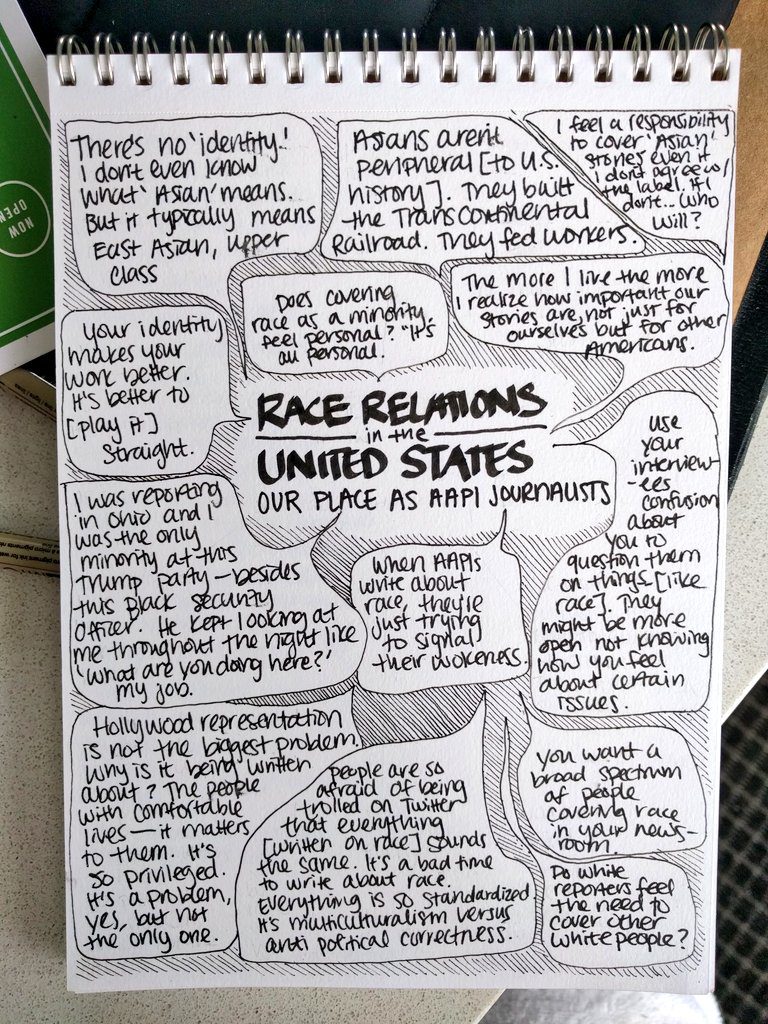 There's no 'identity.'
I dont even know
what 'Asian' means.
But it typically means
East Asian, upper
class
Asians aren't
peripheral [to U.S.
history]. They built
the Transcontinental
Railroad. They fed workers.
I feel a responsibility
to cover 'Asian'
stories even if
I don't agree w/
the label. If I
dont... who
will?
Does covering
race as a minority
feel personal? "It's
all personal.
The more I live the more
I realize how important our
stories are, not just for
ourselves but for other
Americans.
Your identity
makes your
work better.
It's better to
[play it]
straight.
RACE RELATIONS
in the
UNITED STATES
OUR PLACE AS AAPI JOURNALISTS
use
your
interview-
-ees
confusion
about
you to
question them
on things [like
race]. They
might be more
open not knowing
how you feel
about certain
issues.
I was reporting
in Ohio and I
was the only
minority at this
Trump party—besides
this Black security
officer. He kept looking at
me throughout the night like
'what are you doing here?'
my job.
When AAPIs
write about
race, they're
just trying
to signal
their wokeness.
Hollywood representation
is not the biggest problem.
Why is it being written
about? The people
with comfortable
lives—it matters
to them. It's
so privileged.
It's a problem,
yes, but not
the only one.
People are so
afraid of being
trolled on Twitter
that everything
[written on race] sounds
the same. It's a bad time
to write about race.
Everything is so standardized
It's multiculturalism versus
anti political correctness.
You want a
broad spectrum
of people
covering race
in your news-
room.
Do white
reporters feel
the need to
cover other
white people?
NOW
OPEN